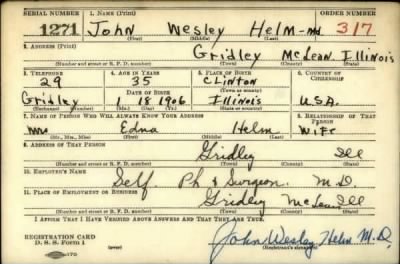 SERIAL NUMBER 1. NAME (Print) ORDER NUMBER
1271 John Wesley Helm - Md 317
(First) (Middle) (Last)
2. ADDRESS (Print)
Gridley McLean Illinois
(Number and street or R. F. D. number) (Town) (County) (State)
3. TELEPHONE 4. AGE IN YEARS 5. PLACE OF BIRTH 6. COUNTRY OF CITIZENSHIP
29 35 CLINTON
DATE OF BIRTH (Town or county)
Gridley 1 18 1906 Illinois U.S.A.
(Exchange) (Number) (Mo.) (Day) (Yr.) (State or country)
7. NAME OF PERSON WHO WILL ALWAYS KNOW YOUR ADDRESS 8. RELATIONSHIP OF THAT PERSON
Mrs Edna Helm Wife
(Mr., Mrs., Miss) (First) (Middle) (Last)
9. ADDRESS OF THAT PERSON
Gridley Ill
(Number and street or R. F. D. number) (Town) (County) (State)
10. EMPLOYER'S NAME
Self. Ph & Surgeon. M.D.
11. PLACE OF EMPLOYMENT OR BUSINESS
Gridley McLean Ill
(Number and street or R. F. D. number) (Town) (County) (State)
I AFFIRM THAT I HAVE VERIFIED ABOVE ANSWERS AND THAT THEY ARE TRUE.
REGISTRATION CARD
D. S. S. Form 1
John Wesley Helm M.D.
(Registrant's signature)